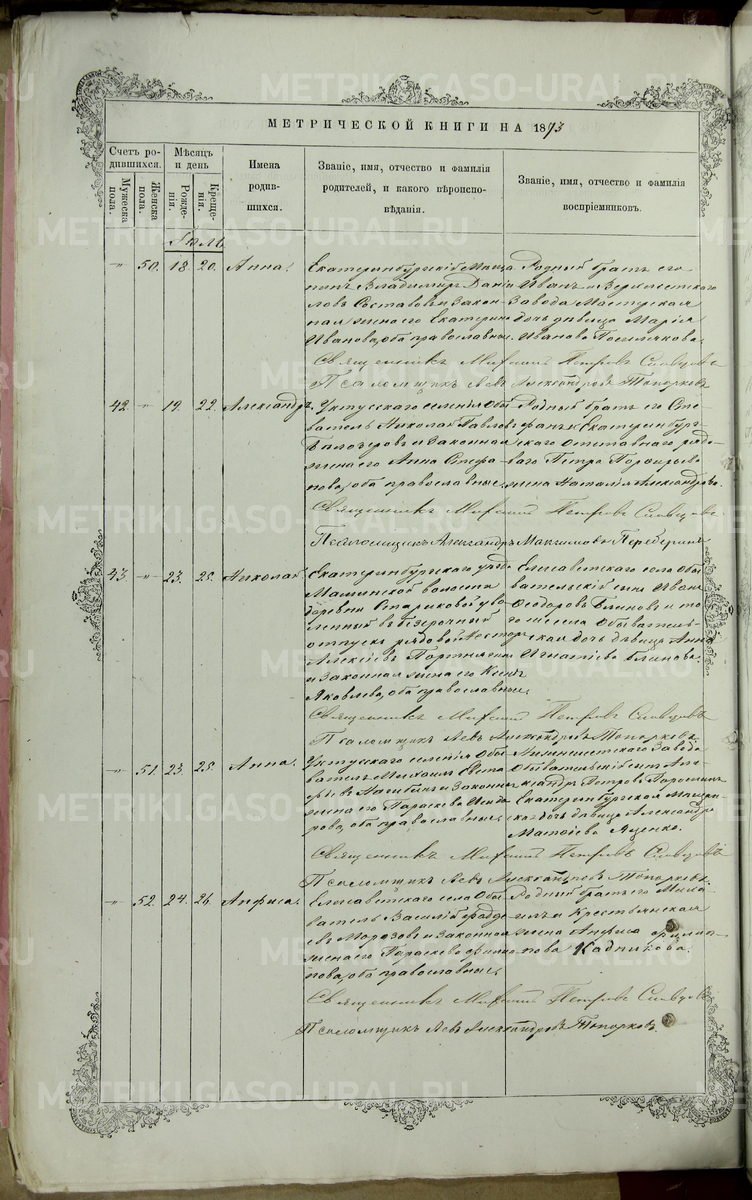 МЕТРИЧЕСКОЙ КНИГИ НА 1873
Счетъ ро-
дившихся.
Мужеска пола.
Женска пола.
Мѣсяцъ
и день
Рожде-
нія.
Креще-
нія.
Имена
родив-
шихся.
Званіе, имя, отчество и фамилія
родителей, и какого вѣроиспо-
вѣданія.
Званіе, имя, отчество и фамилія
воспріемниковъ.
Іюль
" 50. 18. 20. Анна.
Екатеринбургскій Мѣща-
нинъ Владимиръ Даніи-
ловъ и закон-
ная жена его Екатерина
Иванова, оба православные.
Родный братъ его
Иванъ и Верхисетскаго
Завода Мастерская
дочь дѣвица Марія
Иванова
Священникъ Петръ Словцовъ
Псаломщикъ Левъ Александровъ Топорковъ
42. " 19. 22. Александръ.
Уктусскаго селенія Обы-
ватель Николай Павловъ
Бѣлозеровъ и законная
жена его Анна Стефа-
нова, оба православные.
Родный братъ его Сте-
фанъ и Екатеринбург-
скаго отставнаго рядо-
ваго Петра Порфирьева
жена Наталія Александрова.
Священникъ Петровъ Словцовъ
Псаломщикъ Александръ Максимовъ
43. " 23. 25. Николай.
Екатеринбургскаго уѣзда
волости
деревни Стариковой уво-
ленный въ безсрочный
отпускъ рядовой
Алексіевъ
и законная жена его Ксенія
Яковлева, оба православные.
Елисаветскаго села обы-
вательскій сынъ Иванъ
Ѳеодоровъ Блиновъ и то-
го же села Обыватель-
ская дочь дѣвица Анна
Игнатіева Блинова.
Священникъ Петровъ Словцовъ
Псаломщикъ Левъ Александровъ Топорковъ
" 51. 23. 25. Анна.
Уктусскаго селенія Обы-
ватель Михаилъ
и законная
жена его Параскева
оба православные.
Нижнеисетскаго Завода
Обывательскій сынъ Але-
ксандръ Петровъ
и Екатеринбургская Мѣщан-
ская дочь дѣвица Александра
Матѳіева Яценко.
Священникъ Петровъ Словцовъ
Псаломщикъ Левъ Александровъ Топорковъ
" 52. 24. 26. Анфиса.
Елисаветскаго села Обы-
ватель Василій Фадде-
евъ Морозовъ и законная
жена его Параскева Филип-
пова, оба православные.
Родный братъ его Миха-
илъ и Крестьянская
жена Анфиса Филип-
пова Кадникова.
Священникъ Петровъ Словцовъ
Псаломщикъ Левъ Александровъ Топорковъ
METRIKI.GASO-URAL.RU